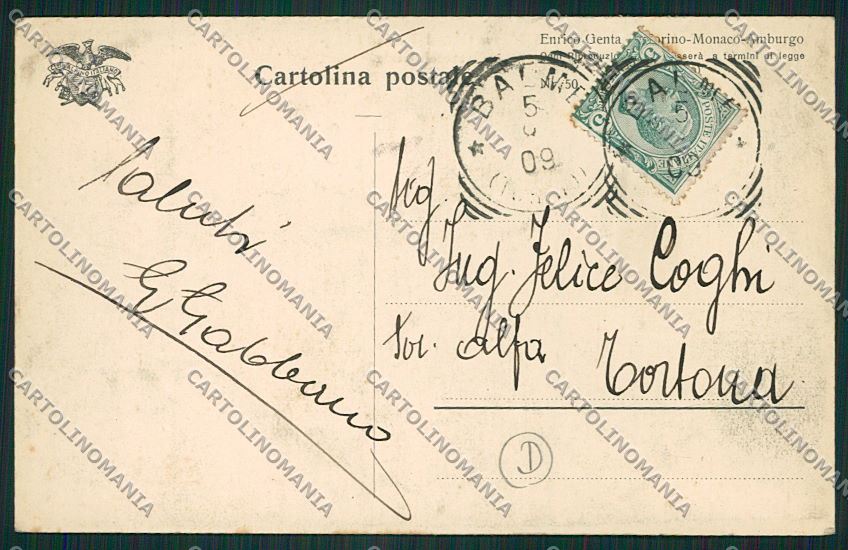 Enrico Genta Torino-Monaco-Amburgo
a termini di legge
Cartolina postale
BALME
5
09
BALME
5
09
POSTE ITALIANE
Saluti
G Gabbano
Sig.
Ing. Felice Coghi
alfa
Tortona
D
CARTOLINOMANIA